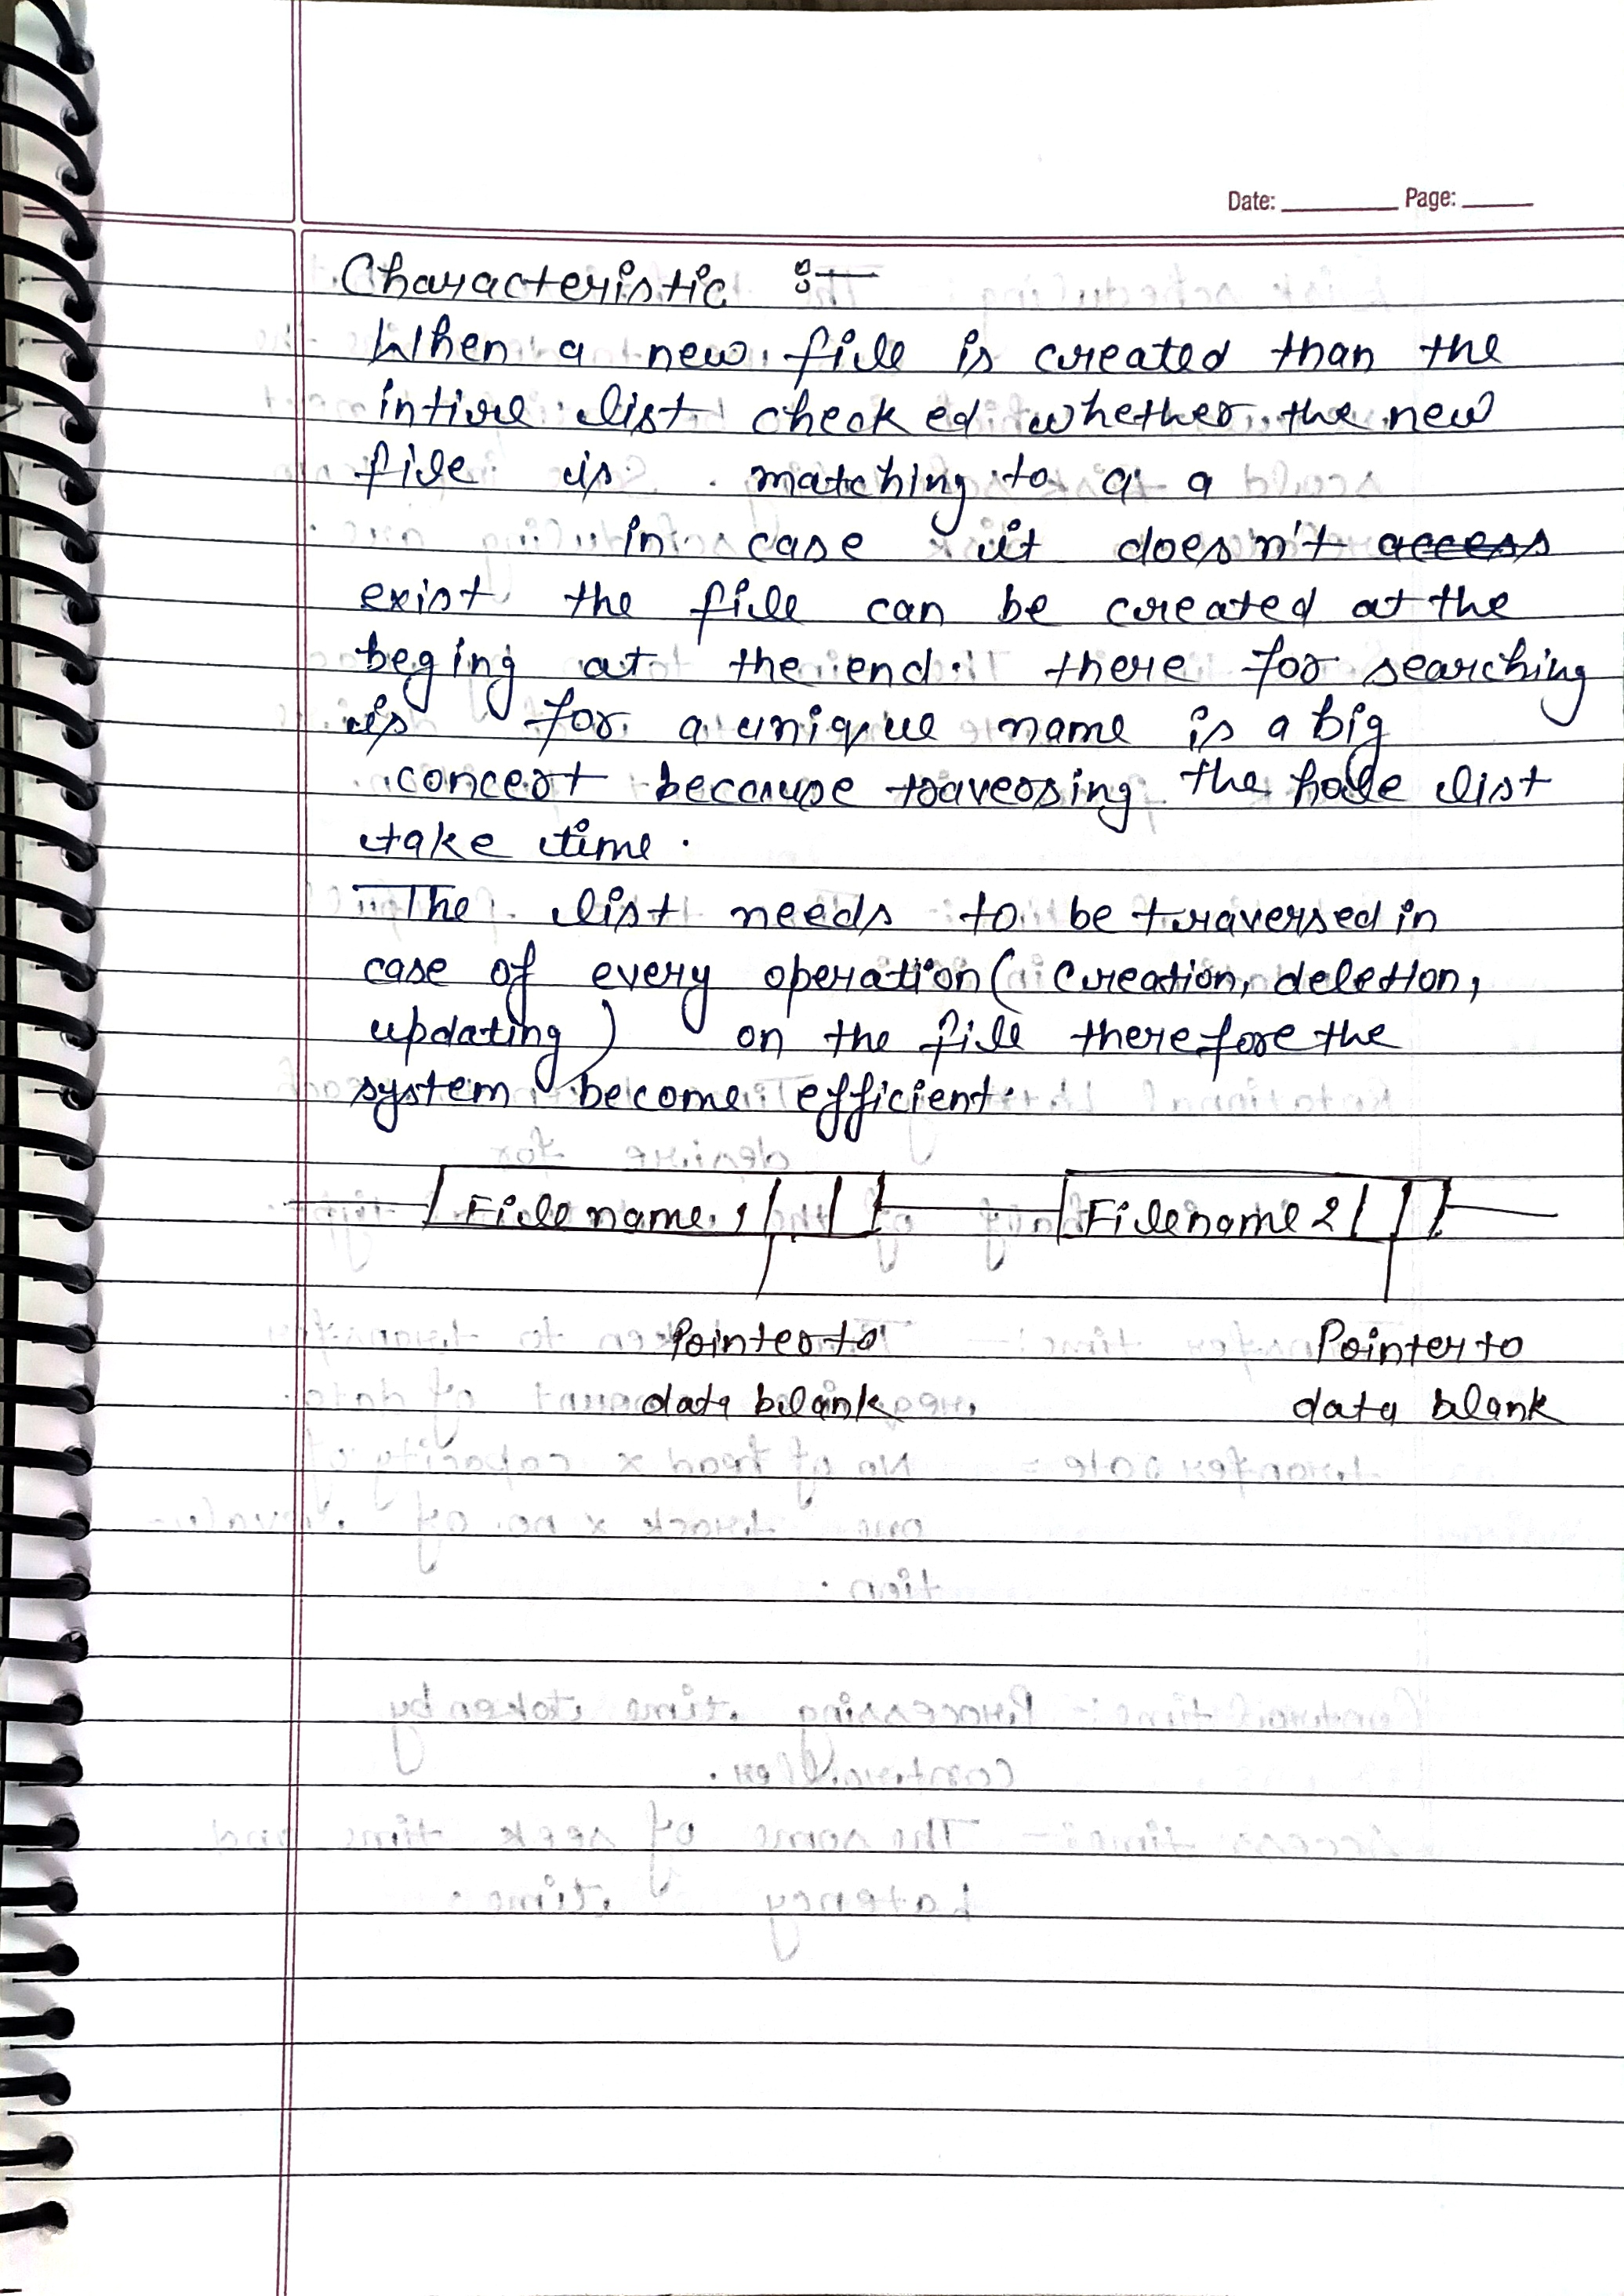 Date: Page:
Characteristic :-
When a new file is created than the
intire list check ed whether the new
file is matching to a a
in case it doesn't access
exist the file can be created at the
beging at the end. there for searching
is for a unique name is a big
concert because traversing the hole list
take time.
The list needs to be traversed in
case of every operation (creation, deletion,
updating) on the file therefore the
system become efficient.
File name 1 File name 2
Pointer to Pointer to
data blank data blank